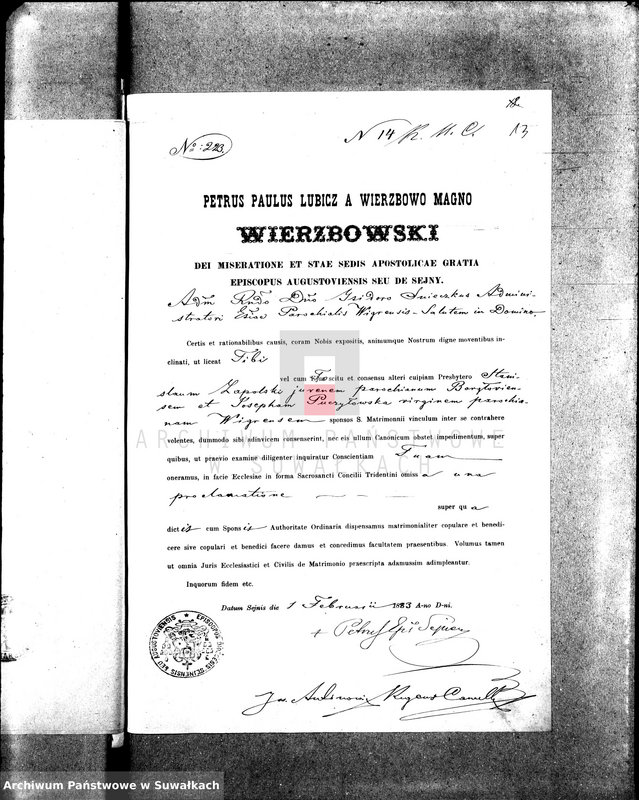 No: 223.
N 14
13
PETRUS PAULUS LUBICZ A WIERZBOWO MAGNO
WIERZBOWSKI
DEI MISERATIONE ET STAE SEDIS APOSTOLICAE GRATIA
EPISCOPUS AUGUSTOVIENSIS SEU DE SEJNY.
Adm Rndo Dno Isidoro Admini-
stratori Parochialis Wigrensis - Salutem in Domino.
Certis et rationabilibus causis, coram Nobis expositis, animumque Nostrum digne moventibus in-
clinati, ut liceat Tibi
vel cum Tuo scitu et consensu alteri cuipiam Presbytero Stani-
slaum Zapolski juvenem parochianum
sem et Josepham virginem parochia-
nam Wigrensem sponsos S. Matrimonii vinculum inter se contrahere
volentes, dummodo sibi adinvicem consenserint, nec eis ullum Canonicum obstet impedimentum, super
quibus, ut praevio examine diligenter inquiratur Conscientiam Tuam
oneramus, in facie Ecclesiae in forma Sacrosancti Concilii Tridentini omissa una
proclamatione
super qua
dictis cum Sponsis Authoritate Ordinaria dispensamus matrimonialiter copulare et benedi-
cere sive copulari et benedici facere damus et concedimus facultatem praesentibus. Volumus tamen
ut omnia Juris Ecclesiastici et Civilis de Matrimonio praescripta adamussim adimpleantur.
Inquorum fidem etc.
Datum Sejnis die 1 Februarii 1883 A-no D-ni.
+ Petrus Epi Sejnen
ARCHIWUM PAŃSTWOWE
W SUWAŁKACH
Archiwum Państwowe w Suwałkach